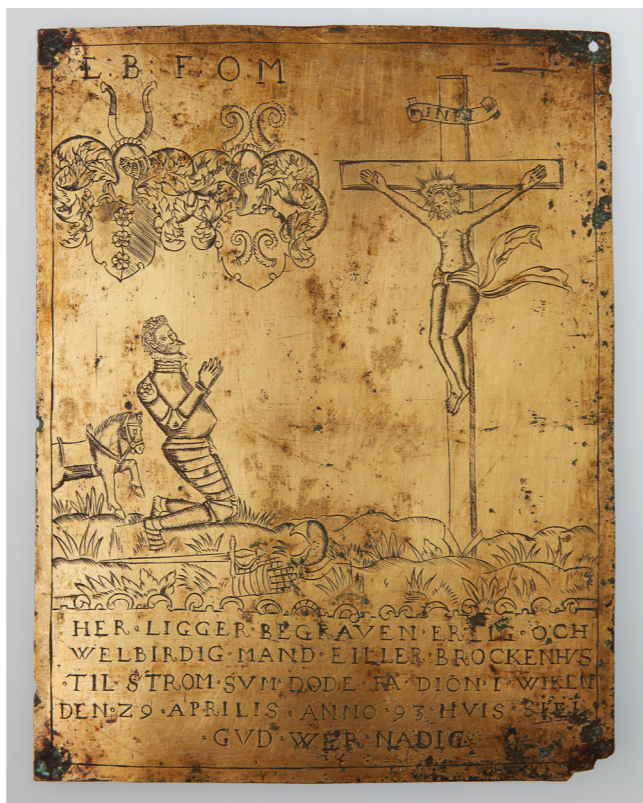 E·B·F·O·M
INRI
HER·LIGGER·BEGRAVEN·ERLIG·OCH
WELBIRDIG·MAND·EILLER·BROCKENHVS
·TIL·STROM·SVM·DODE·PA·DION·I·WIKEN
DEN·29·APRILIS·ANNO·93·HVIS·SIEL·
·GVD·WER·NADIG·